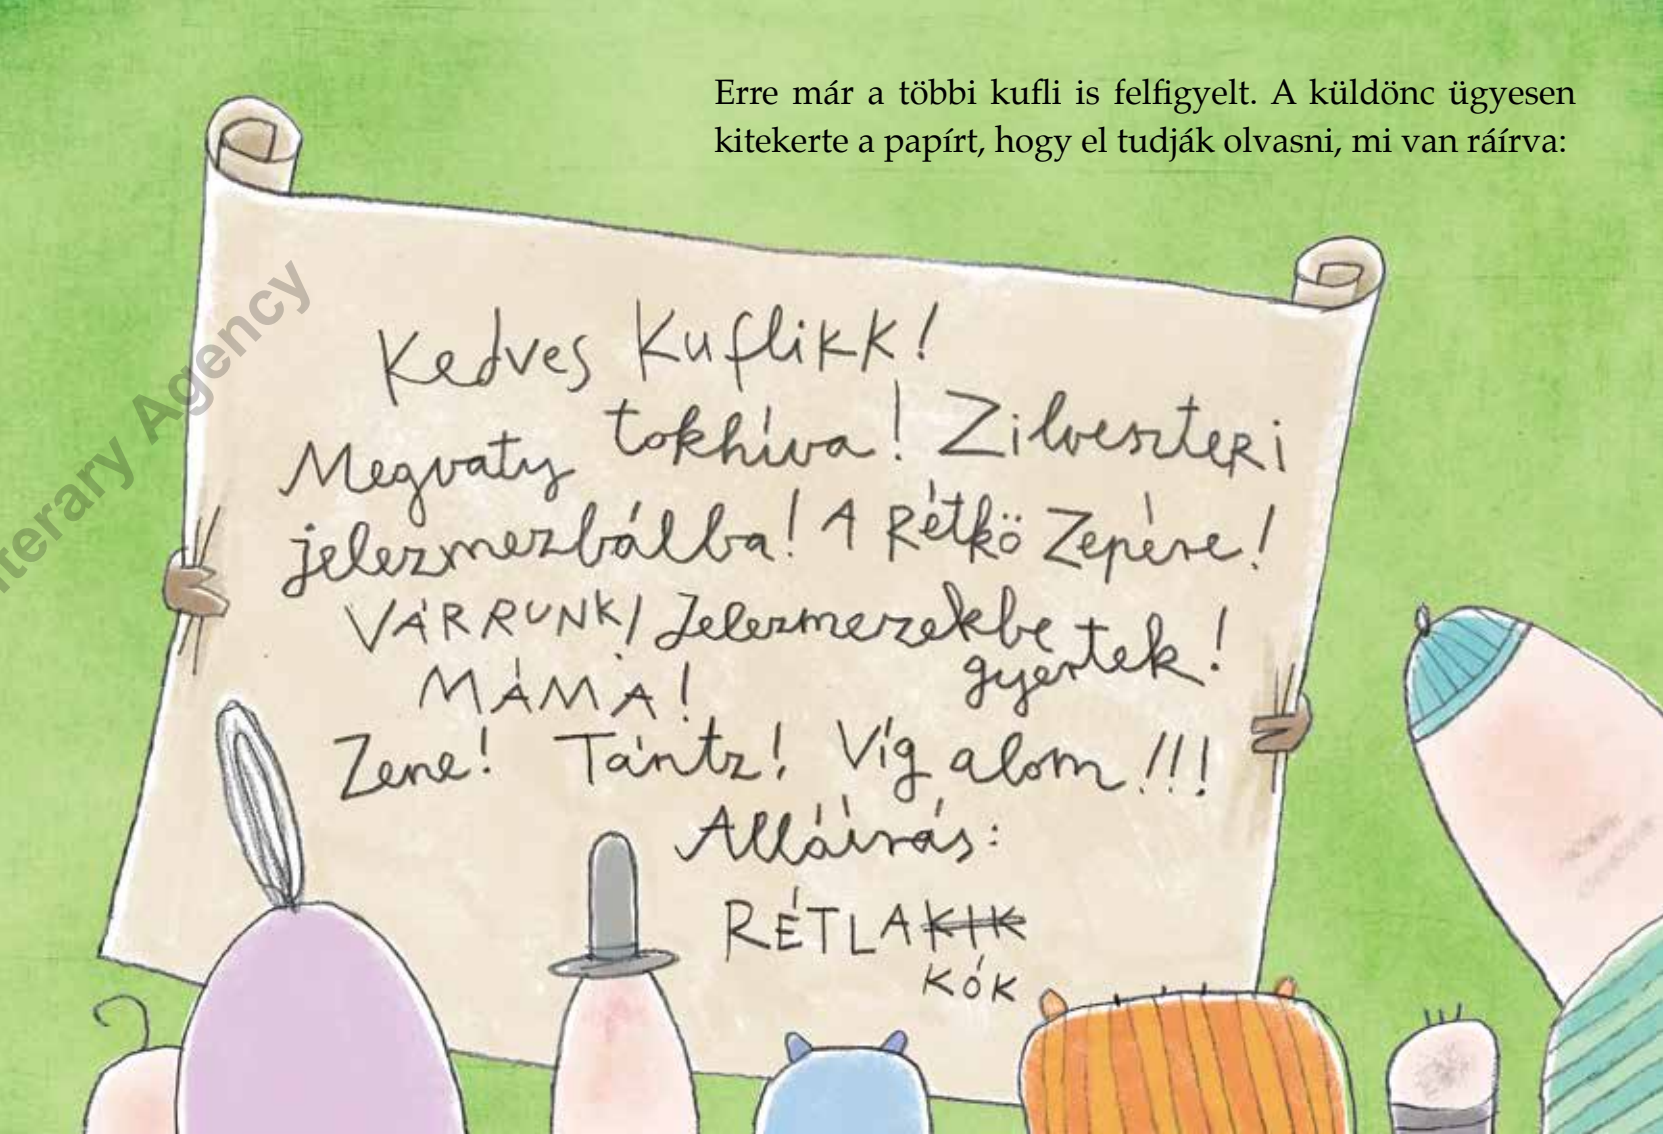 Erre már a többi kufli is felfigyelt. A küldönc ügyesen
kitekerte a papírt, hogy el tudják olvasni, mi van ráírva:
Kedves Kuflikk!
Megvaty tokhíva! Zilveszteri
jelezmezbálba! A Rétkö Zepére!
VÁRRUNK! Jelezmezekbe
gyertek!
MÁMA!
Zene! Tántz! Víg alom!!!
Alláírás:
RÉTLAKIK
KÓK
literary Agency